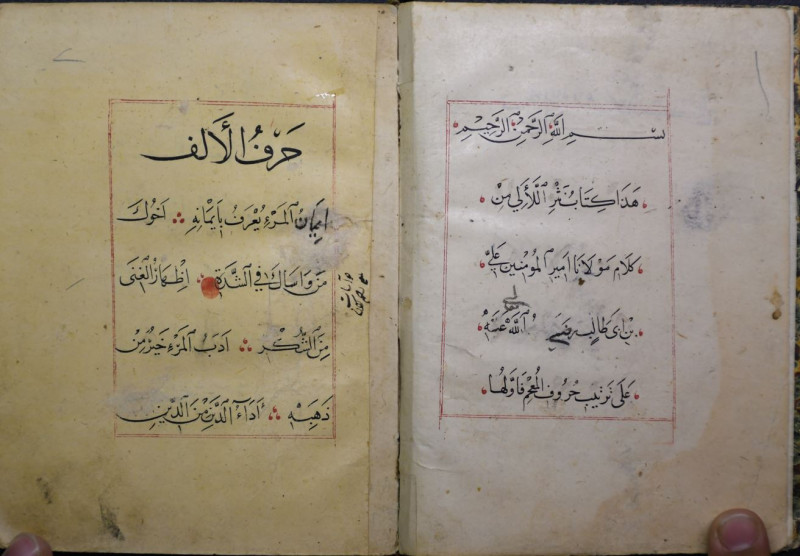 بِسْمِ اللهِ الرَّحْمٰنِ الرَّحِيْمِ
هَذَا كِتَابُ نَثْرُ اللَّآلِي مِنْ
كَلَامِ مَوْلَانَا اَمِيرِ الْمُؤْمِنِينَ عَلِيِّ
بْنِ اَبِي طَالِبٍ رَضِيَ اللّٰهُ عَنْهُ
عَلَى تَرْتِيبِ حُرُوفِ الْمُعْجَمِ فَاَوَّلُهَا
حَرْفُ الْأَلِفِ
اِيمَانُ الْمَرْءِ يُعْرَفُ بِاَيْمَانِهِ اَخُوكَ
مَنْ وَاسَاكَ فِي الشِّدَّةِ اِظْهَارُ الْغِنَى
مِنَ الشُّكْرِ اَدَبُ الْمَرْءِ خَيْرٌ مِنْ
ذَهَبِهِ اَدَاءُ الدَّيْنِ مِنَ الدِّينِ